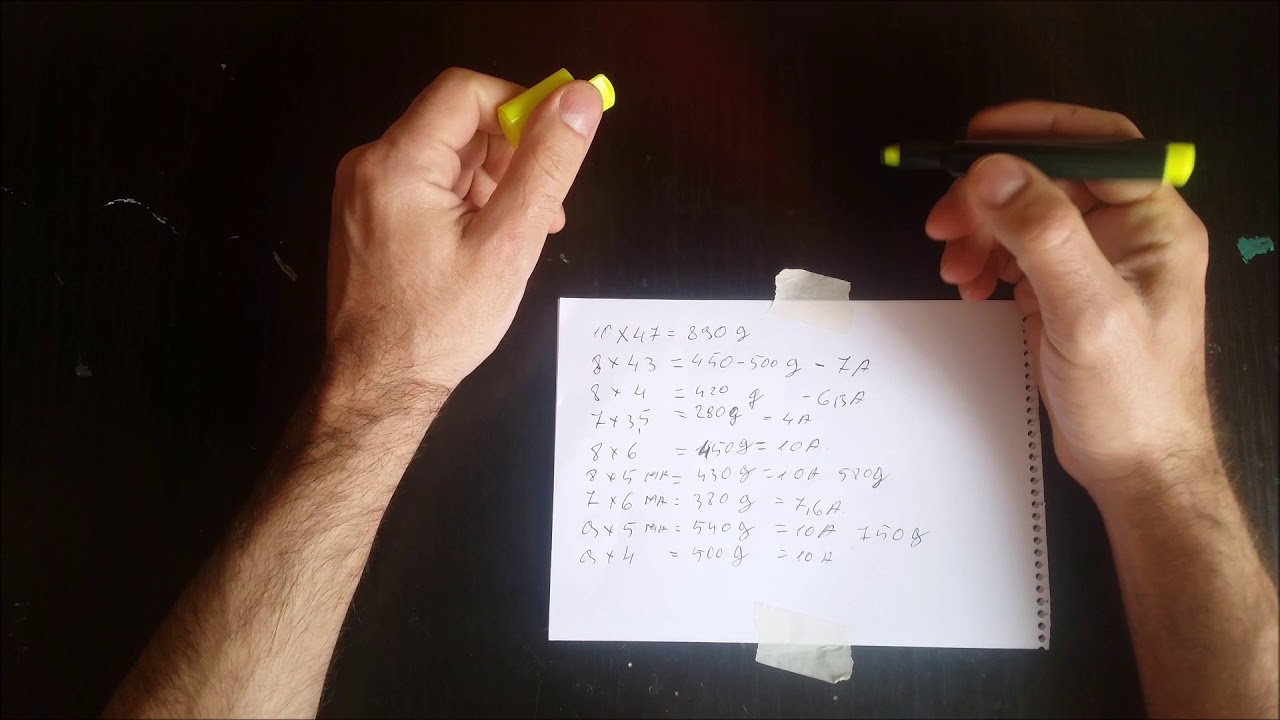 10 x 47 = 890 g
8 x 43 = 450-500 g - 7A
8 x 4 = 420 g - 6,3A
7 x 3,5 = 280 g = 4A
8 x 6 = 450 g = 10A.
8 x 5 MA = 430 g = 10A 580g
7 x 6 MA = 380 g = 7,6A.
9 x 5 MA = 540 g = 10A 750g
9 x 4 = 500 g = 10A